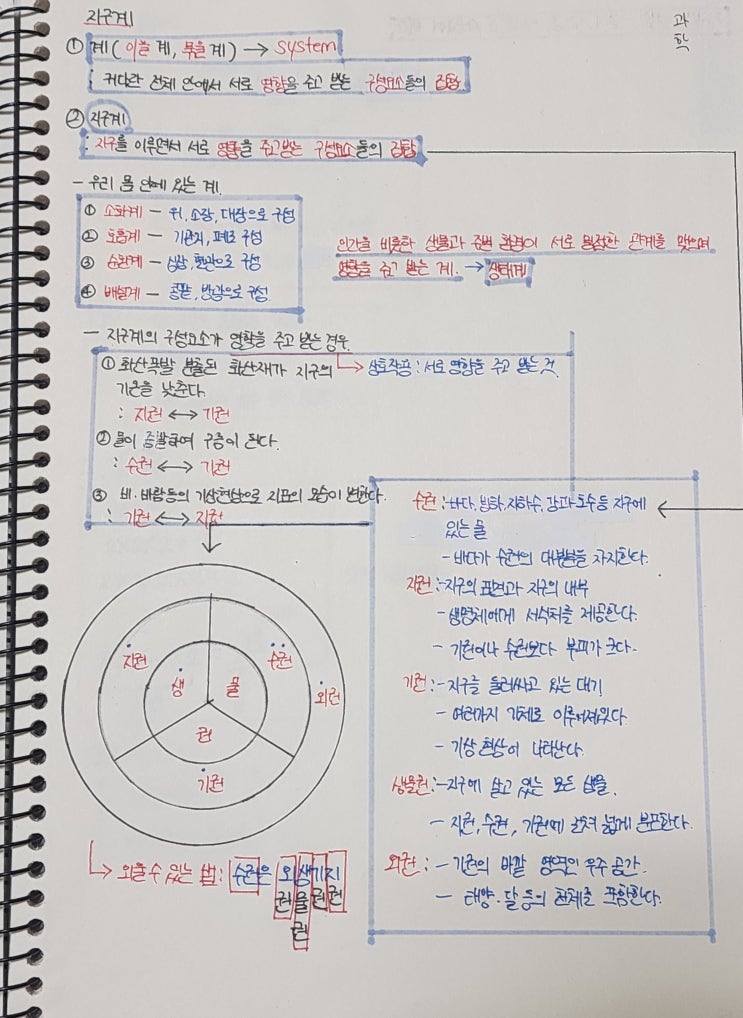 과학
지구계
① 계(이을 계, 묶을 계) → system
: 커다란 전체 안에서 서로 영향을 주고 받는 구성요소들의 집합
② 지구계
: 지구를 이루면서 서로 영향을 주고받는 구성요소들의 집합
- 우리 몸 안에 있는 계
① 소화계 - 위, 소장, 대장으로 구성
② 호흡계 - 기관지, 폐로 구성
③ 순환계 - 심장, 혈관으로 구성
④ 배설계 - 콩팥, 방광으로 구성
인간을 비롯한 생물과 주변 환경이 서로 밀접한 관계를 맺으며
영향을 주고 받는 계. → 생태계
- 지구계의 구성요소가 영향을 주고 받는 경우
→ 상호작용 : 서로 영향을 주고 받는 것
① 화산폭발 분출된 화산재가 지구의
기온을 낮춘다.
: 지권 ↔ 기권
② 물이 증발하여 구름이 된다.
: 수권 ↔ 기권
③ 비·바람등의 기상현상으로 지표의 모습이 변한다.
: 기권 ↔ 지권
지권
수권
외권
생 물
권
기권
→ 외울 수 있는 법: 수권은 외생기지
권물권권
권
수권 : 바다, 빙하, 지하수, 강과 호수 등 지구에
있는 물
- 바다가 수권의 대부분을 차지한다.
지권 : -지구의 표면과 지구의 내부
- 생명체에게 서식처를 제공한다.
- 기권이나 수권보다 부피가 크다.
기권 : - 지구를 둘러싸고 있는 대기
- 여러가지 기체로 이루어져있다.
- 기상 현상이 나타난다.
생물권 : -지구에 살고 있는 모든 생물.
- 지권, 수권, 기권에 걸쳐 넓게 분포한다.
외권 : - 기권의 바깥 영역인 우주 공간.
- 태양·달 등의 천체를 포함한다.